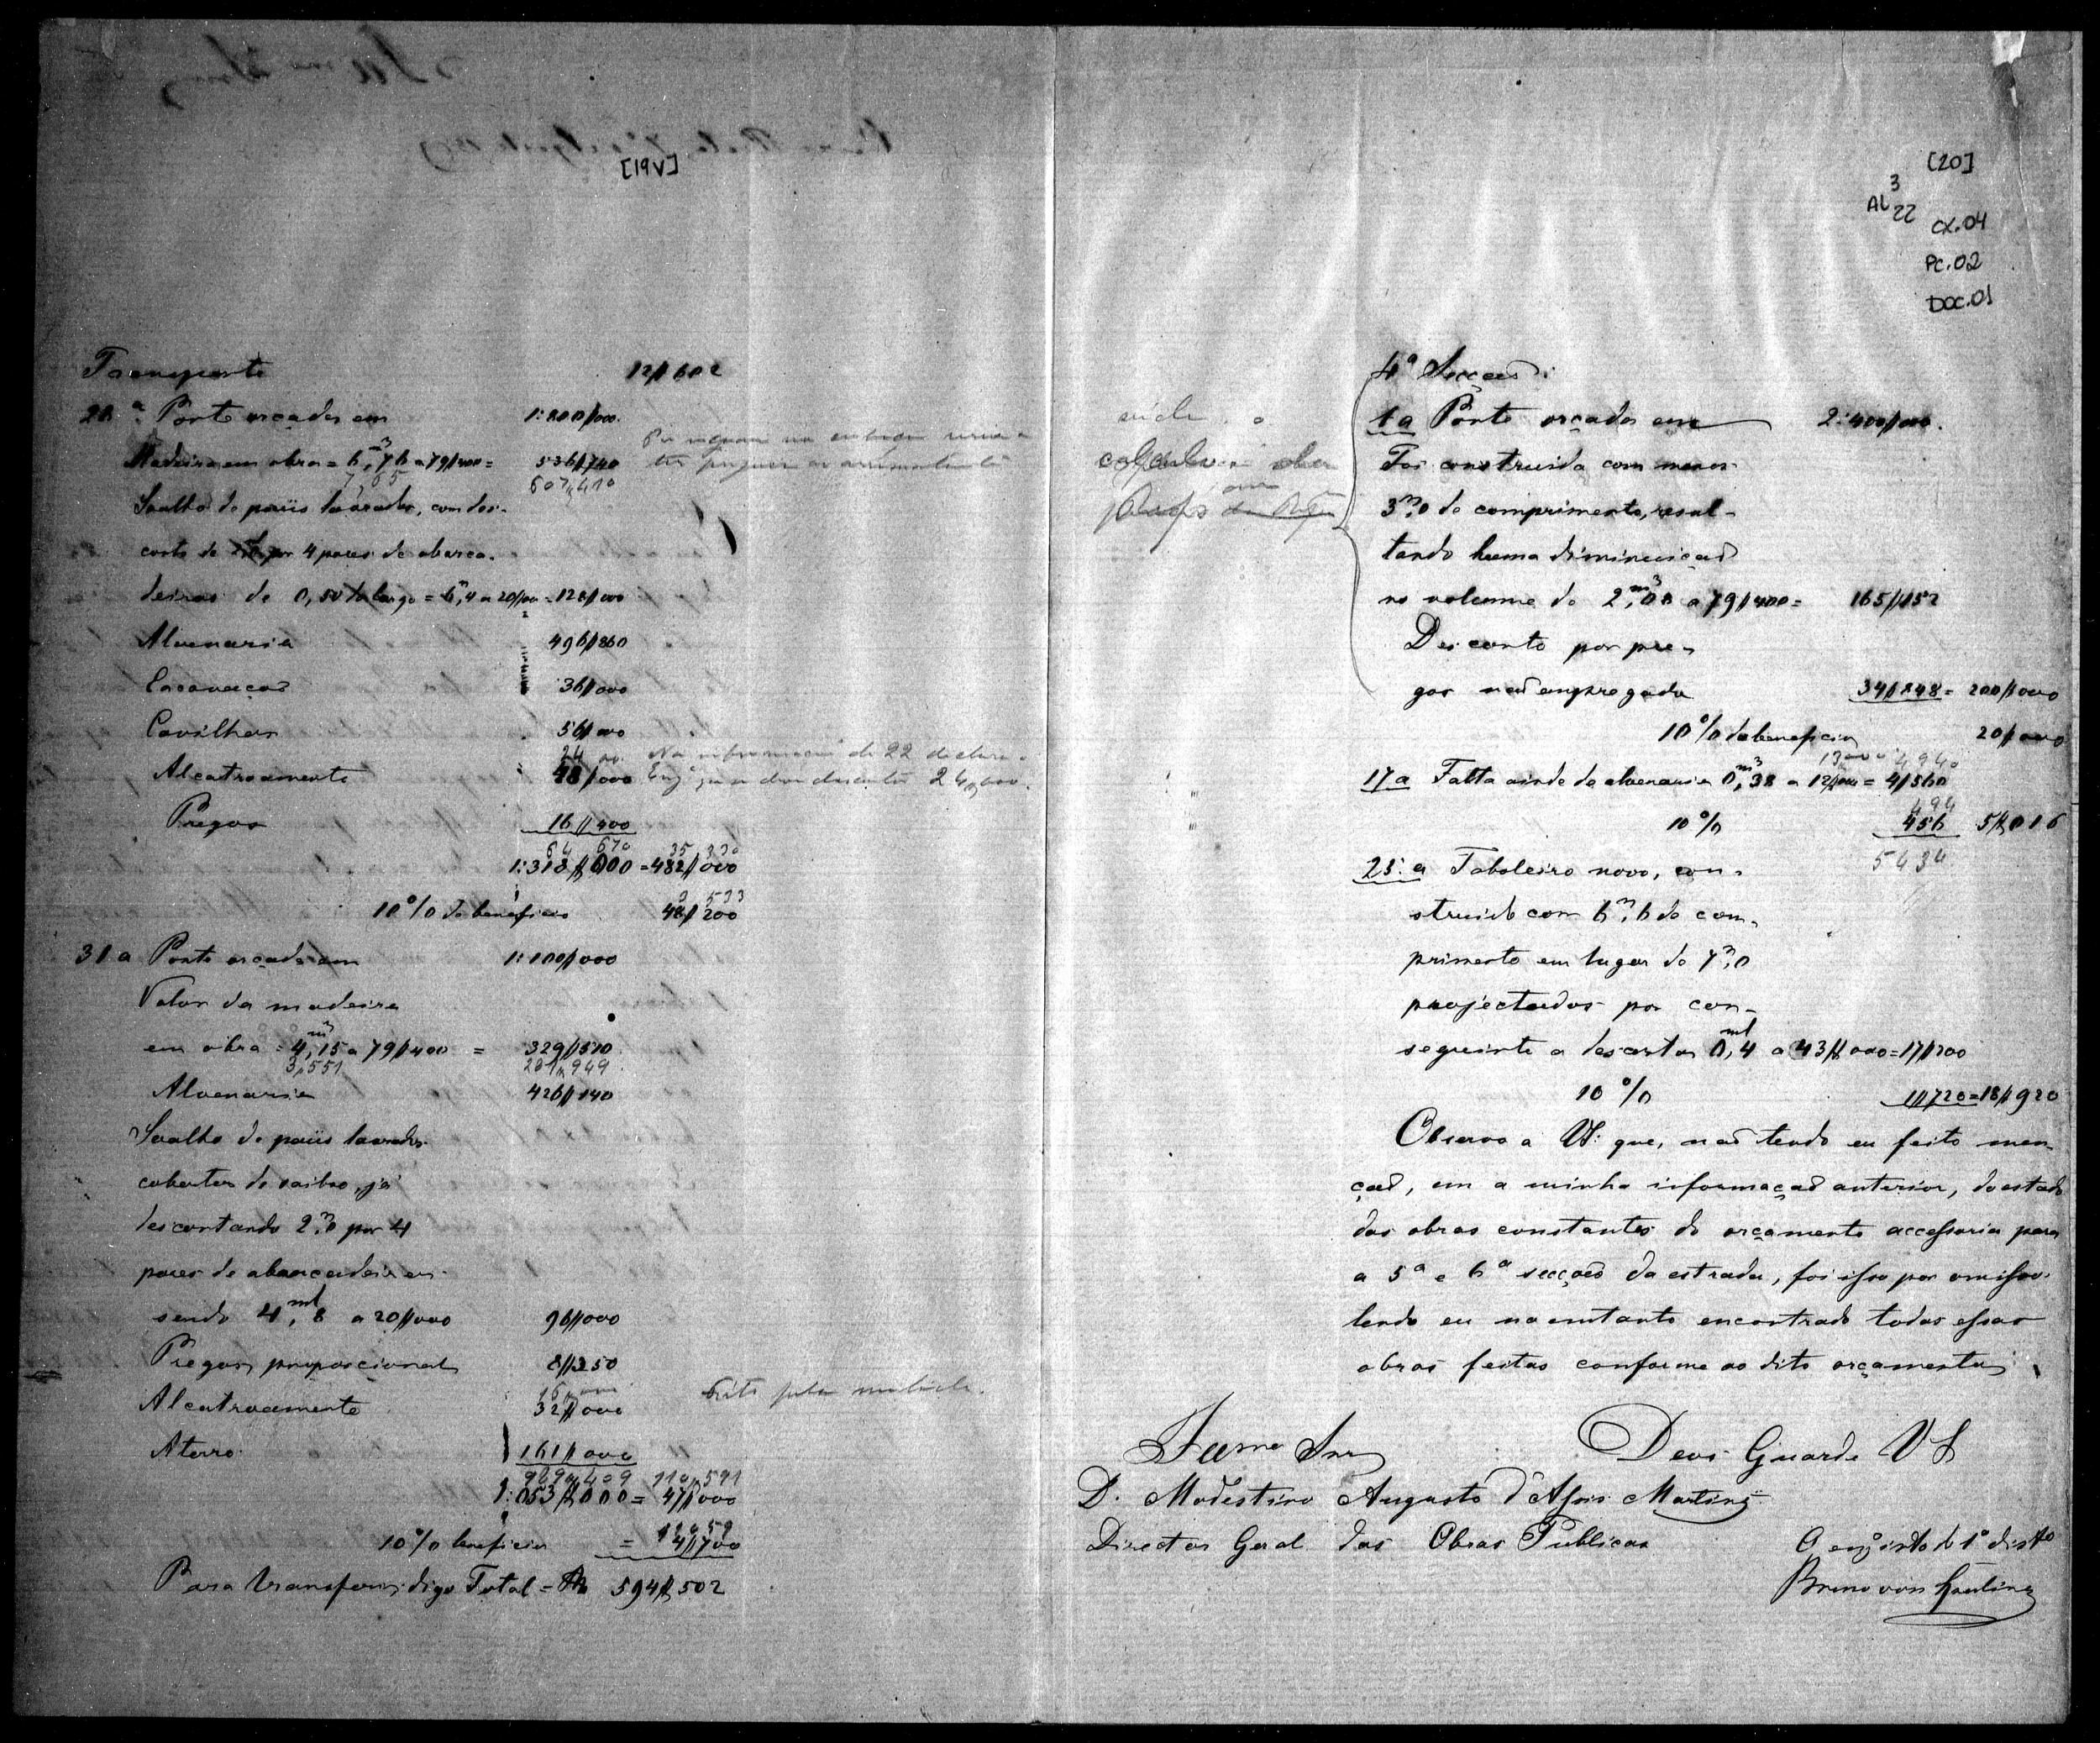 [19V]
Transporte 12$602
28.a Ponte orçada em 1:800$000.
Madeira em obra = 6,m376 a 79$400 = 536$740
7,65 607,410
Soalho de páus lavrados, com des-
conto de por 4 pares de abarca-
deiras de 0,50 de largo = 6,m4 a 20$000 = 128$000
Alvenaria 496$860
Escavação 36$000
Cavilhas 56$000
24
Alcatroamento 48$000 Na informação de 22 declara o Eng.o que deve descontar 24,000.
Pregos 16$400
64 670 35 330
1:318$000 = 482$000
3 533
10% de beneficio 48$200
31a Ponte orçada em 1:100$000
Valor da madeira
em obra = 4,m315 a 79$400 = 329$510
3,551 281,949
Alvenaria 426$140
Soalho de páus lavrados
cobertos de saibro, já
descontando 2,m0 por 4
pares de abarcadeiras
sendo 4,ml8 a 20$000 96$000
Pregos, proporcional 8$350
16,000
Alcatroamento 32$000 Feito pela metade.
Aterro 161$000
989,409 110,591
1:053$000 = 47$000
11059
10% beneficio = 4$700
Para transferir, digo Total = Rs 594$502
[20]
AL 3 22
CX.04
PC.02
DOC.01
4a Secção:
1a Ponte orçada em 2:400$000.
Foi construida com menos
3,m0 de comprimento, resul-
tando huma diminuição
no volume de 2,m308 a 79$400 = 165$152
Desconto por pre-
gos não empregados 34$848 = 200$000
10% de beneficio 20$000
13000 4940
17a Falta ainda de alvenaria 0,m338 a 12$000 = 4$560
494
10% 456 5$016
5434
23.a Taboleiro novo, con-
struido com 6,m6 de com-
primento em lugar de 7,m0
projectados por con-
seguinte a descontar 0,ml4 a 43$000 = 17$200
10% 1$720 = 18$920
Observo a VS: que, não tendo eu feito men-
ção, em a minha informação anterior, do estado
das obras constantes do orçamento accessorio para
a 5a e 6a secção da estrada, foi isso por omissão
tendo eu no emtanto encontrado todas essas
obras feitas conforme ao dito orçamento
Deos Guarde VS
Illmo Snr
D. Modestino Augusto d'Assis Martins
Director Geral das Obras Publicas
O engo do 1o disto
Bruno von Sperling